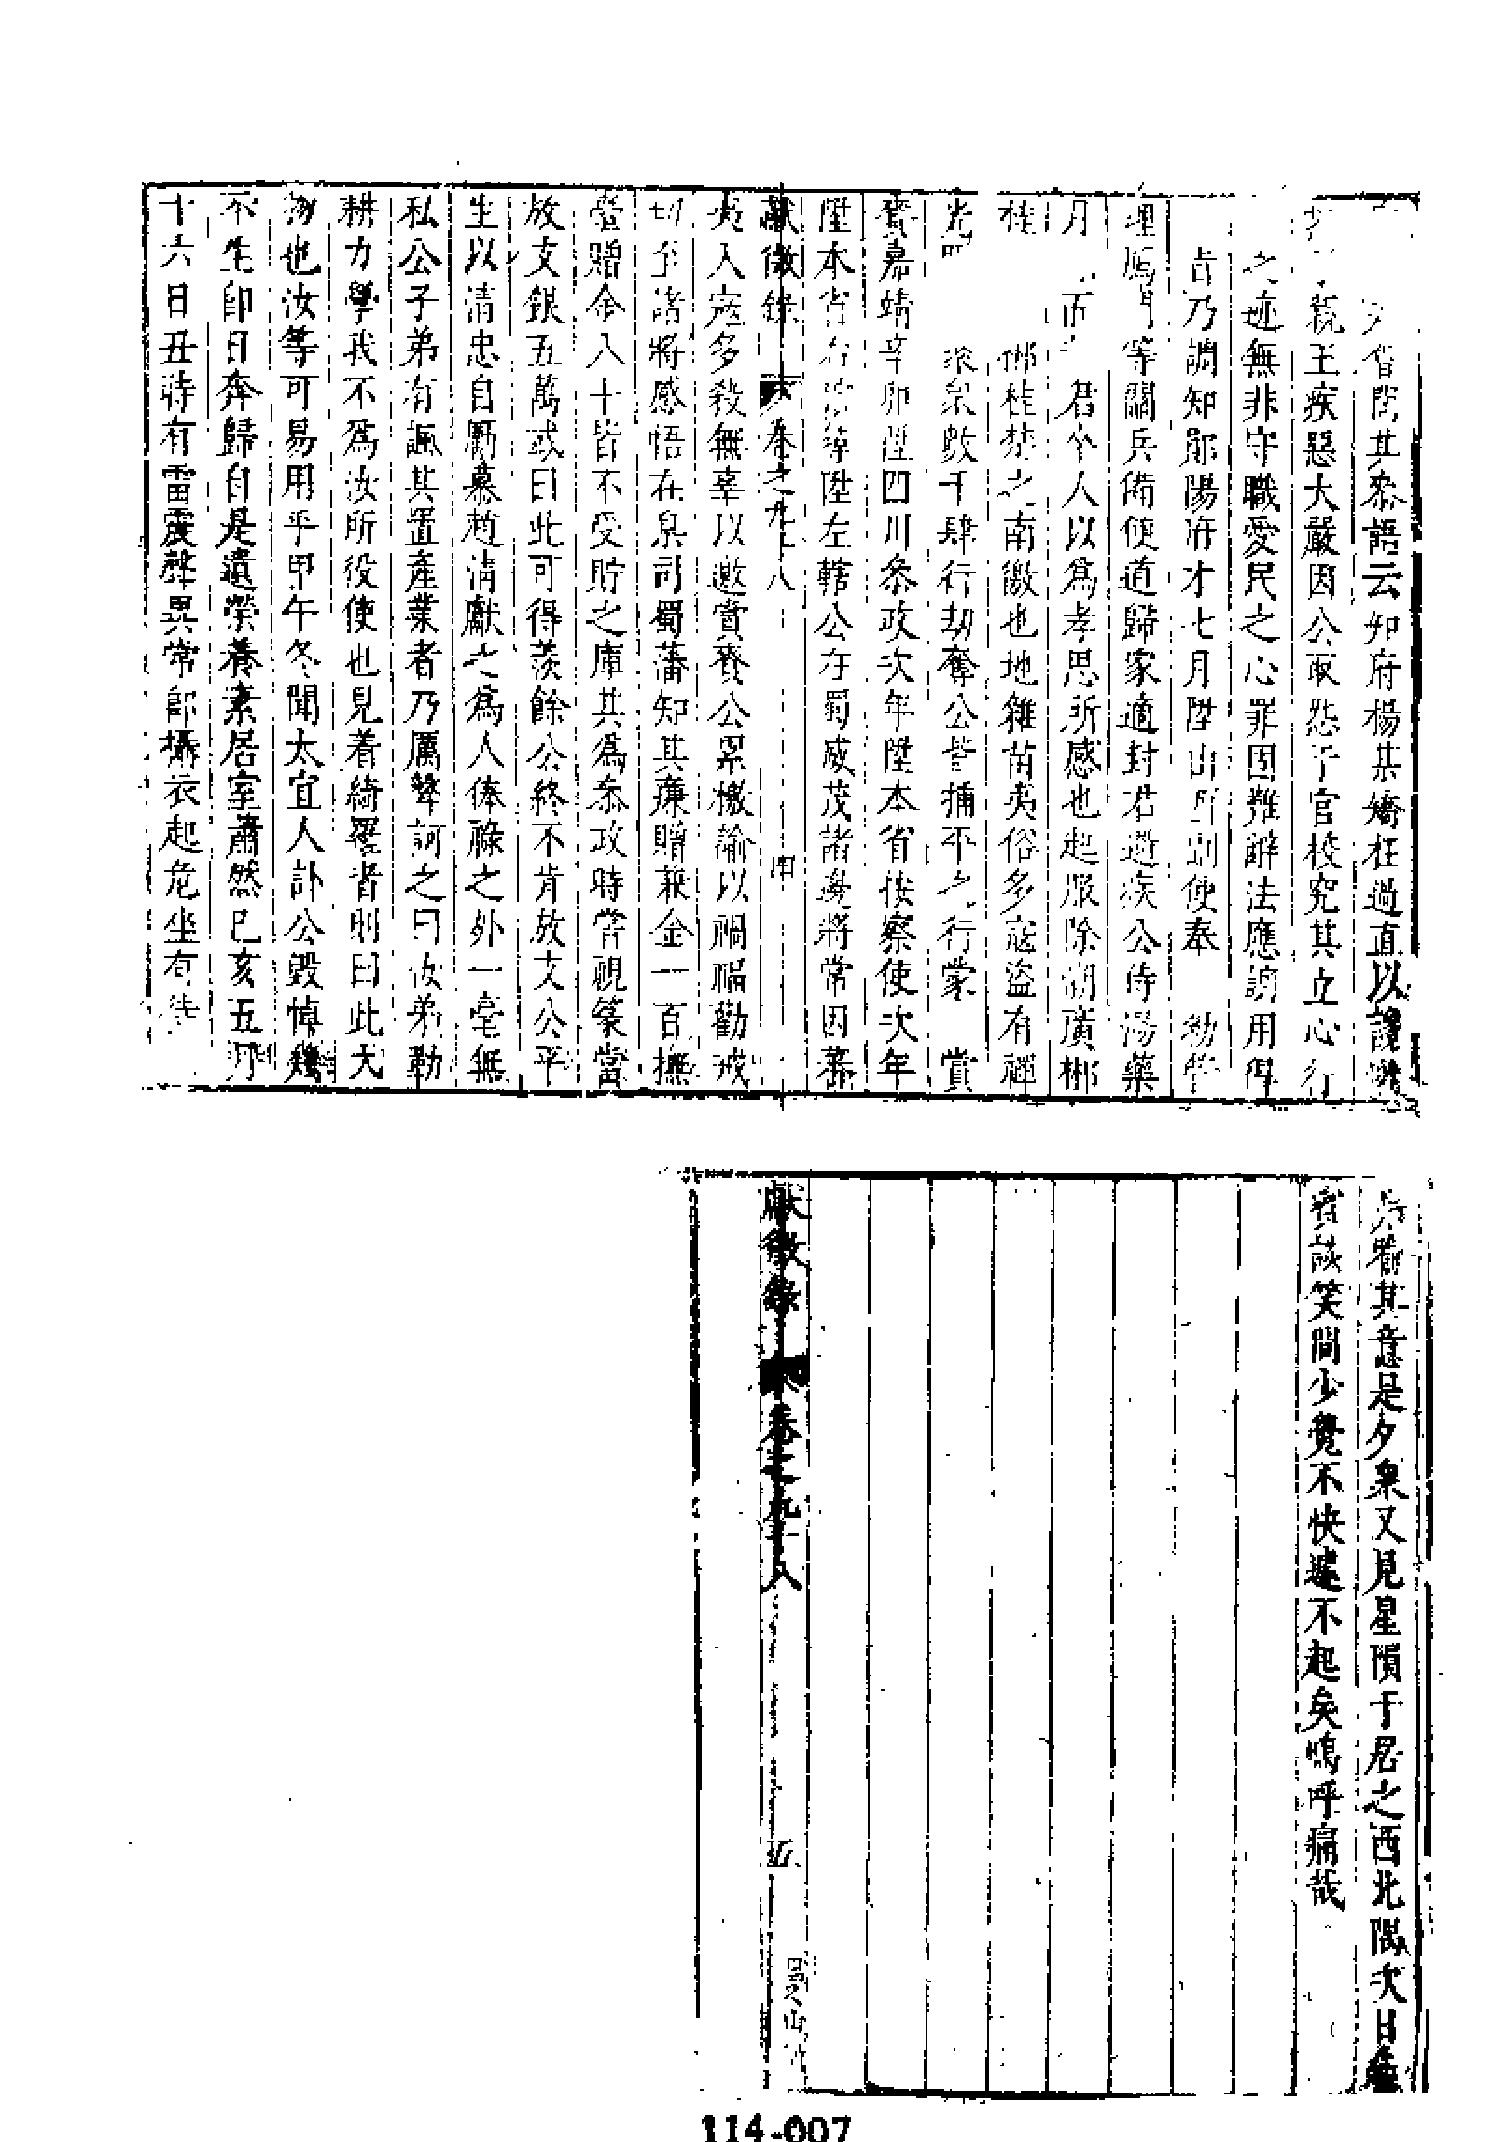 問其語云知府楊某矯枉過直以
親王疾惡大嚴因公取怨于官校究其立心行
之迹無非守職愛民之心罪固難辭法應調用得
旨乃調知鄖陽府才七月陞山副使奉 勑管
理鴈門等關兵備便道歸家適封君遘疾公侍湯藥
月 而 君卒人以為孝思所感也起服除湖廣郴
桂 郴桂楚之南徼也地雜苗夷俗多寇盜有
泉數千肆行劫奪公皆捕平之行蒙 賞
賚嘉靖辛卯陞四川叅政次年陞本省按察使次年
陞本省右 陞左轄公在蜀威茂諸邊將常因番
獻徵錄 卷之九十八
夷入寇多殺無辜以邀賞賚公累檄諭以禍福勸戒
切至諸將感悟在臬司蜀藩知其廉贈兼金一百撫
臺贈金八十皆不受貯之庫其為叅政時嘗視篆當
放支銀五萬或曰此可得羨餘公終不肯放支公平
生以清忠自勵慕趙清獻之為人俸祿之外一毫無
私公子弟有諷其置產業者乃厲聲訶之曰汝弟勒
耕力學我不爲汝所役使也見着綺羅者則曰此天
物也汝等可易用乎甲午冬聞太宜人訃公毀悼幾
不生卽日奔歸自是遺榮養素居室蕭然已亥五月
十六日丑時有雷震聲異常卽攝衣起危坐有
喻其意是夕衆又見星隕于居之西北隅次日
賓談笑間少覺不快遽不起矣嗚呼痛哉
獻徵錄 卷之九十八
114-007